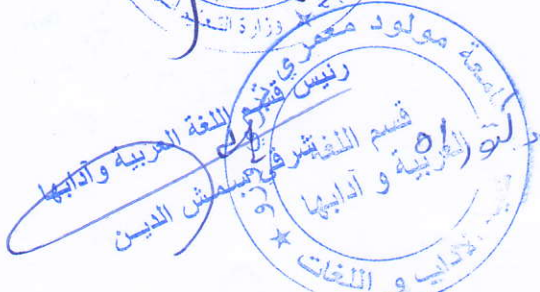 وزارة
جامعة مولود معمري
رئيس قسم اللغة العربية وآدابها
شرفي شمش الدين
قسم اللغة
العربية و آدابها
الآداب و اللغات